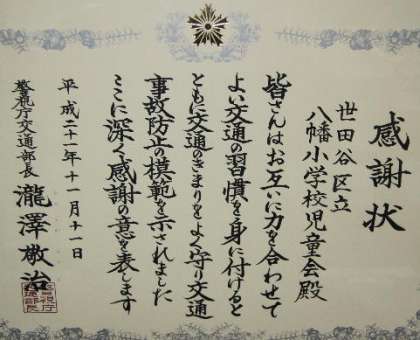 感謝状
世田谷区立
八幡小学校児童会殿
皆さんはお互いに力を合わせて
よい交通の習慣を身に付けると
ともに交通のきまりをよく守り交通
事故防止の模範を示されました
ここに深く感謝の意を表します
平成二十一年十一月十一日
警視庁交通部長
瀧澤敬治